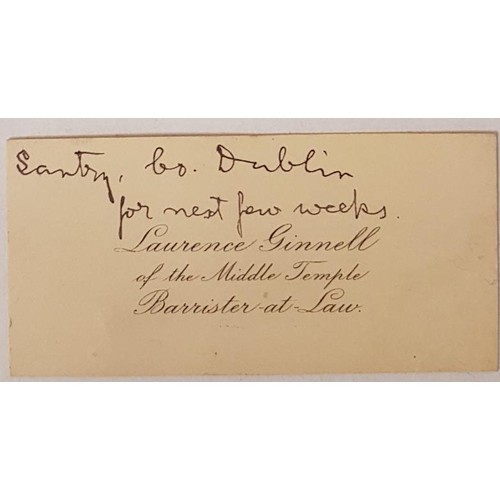 Santry, Co. Dublin
for next few weeks.
Laurence Ginnell
of the Middle Temple
Barrister-at-Law.